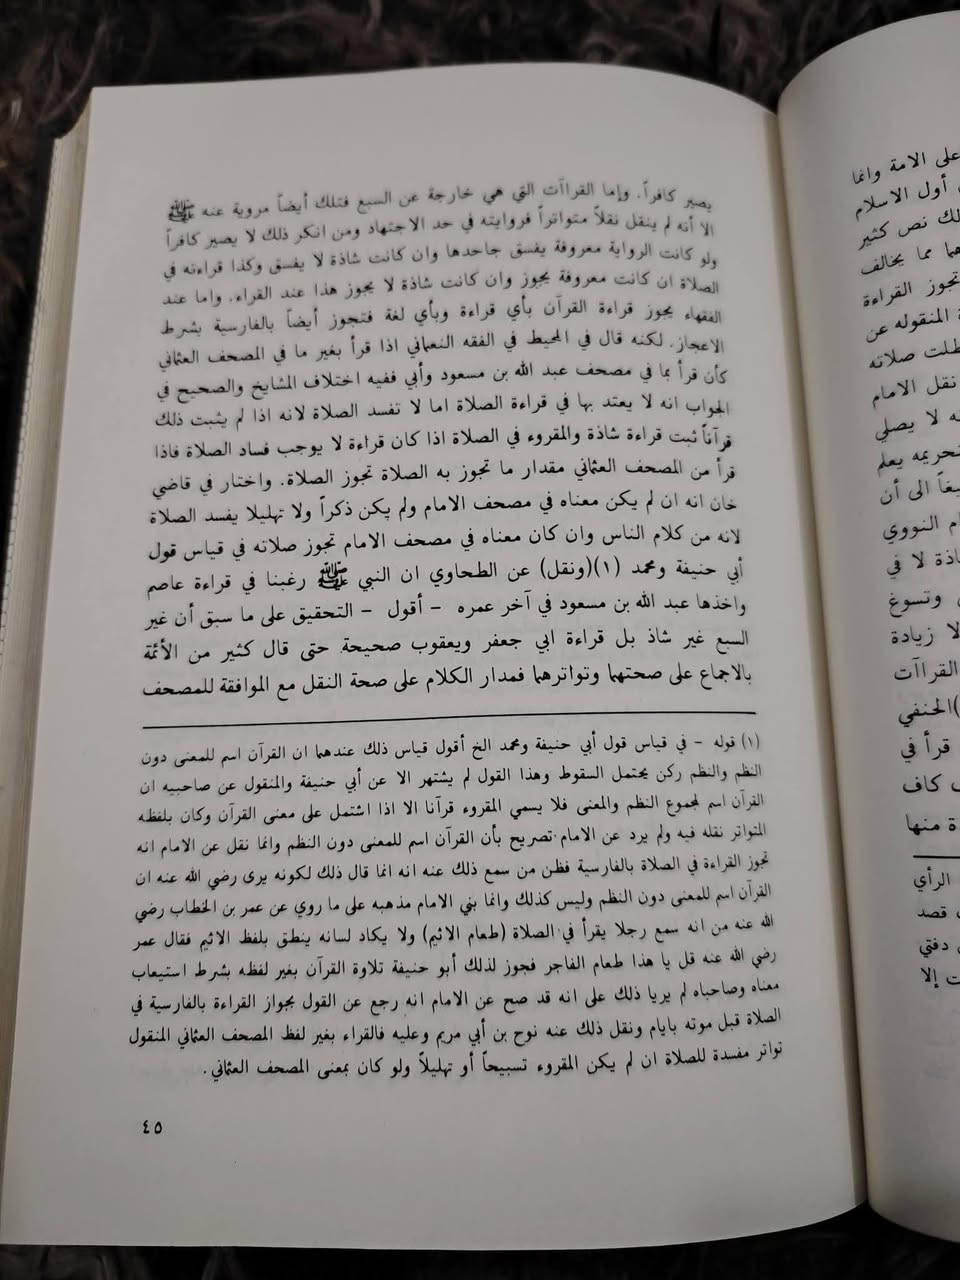 يصير كافراً. وإما القراآت التي هي خارجة عن السبع فتلك أيضاً مروية عنه ﷺ
الا أنه لم ينقل نقلاً متواتراً فروايته في حد الاجتهاد ومن انكر ذلك لا يصير كافراً
ولو كانت الرواية معروفة يفسق جاحدها وان كانت شاذة لا يفسق وكذا قراءته في
الصلاة ان كانت معروفة يجوز وان كانت شاذة لا يجوز هذا عند القراء. واما عند
الفقهاء يجوز قراءة القرآن بأي قراءة وبأي لغة فتجوز أيضاً بالفارسية بشرط
الاعجاز. لكنه قال في المحيط في الفقه النعماني اذا قرأ بغير ما في المصحف العثماني
كأن قرأ بما في مصحف عبد الله بن مسعود وأبي ففيه اختلاف المشايخ والصحيح في
الجواب انه لا يعتد بها في قراءة الصلاة اما لا تفسد الصلاة لانه اذا لم يثبت ذلك
قرآناً ثبت قراءة شاذة والمقروء في الصلاة اذا كان قراءة لا يوجب فساد الصلاة فاذا
قرأ من المصحف العثماني مقدار ما تجوز به الصلاة تجوز الصلاة. واختار في قاضي
خان انه ان لم يكن معناه في مصحف الامام ولم يكن ذكراً ولا تهليلا يفسد الصلاة
لانه من كلام الناس وان كان معناه في مصحف الامام تجوز صلاته في قياس قول
أبي حنيفة ومحمد (١)(ونقل) عن الطحاوي ان النبي ﷺ رغبنا في قراءة عاصم
واخذها عبد الله بن مسعود في آخر عمره - أقول - التحقيق على ما سبق أن غير
السبع غير شاذ بل قراءة ابي جعفر ويعقوب صحيحة حتى قال كثير من الأئمة
بالاجماع على صحتهما وتواترهما فمدار الكلام على صحة النقل مع الموافقة للمصحف
(١) قوله - في قياس قول أبي حنيفة ومحمد الخ أقول قياس ذلك عندهما ان القرآن اسم للمعنى دون
النظم والنظم ركن يحتمل السقوط وهذا القول لم يشتهر الا عن أبي حنيفة والمنقول عن صاحبيه ان
القرآن اسم لمجموع النظم والمعنى فلا يسمي المقروء قرآنا الا اذا اشتمل على معنى القرآن وكان بلفظه
المتواتر نقله فيه ولم يرد عن الامام تصريح بأن القرآن اسم للمعنى دون النظم وانما نقل عن الامام انه
تجوز القراءة في الصلاة بالفارسية فظن من سمع ذلك عنه انه انما قال ذلك لكونه يرى رضي الله عنه ان
القرآن اسم للمعنى دون النظم وليس كذلك وانما بني الامام مذهبه على ما روي عن عمر بن الخطاب رضي
الله عنه من انه سمع رجلا يقرأ في الصلاة (طعام الاثيم) ولا يكاد لسانه ينطق بلفظ الاثيم فقال عمر
رضي الله عنه قل يا هذا طعام الفاجر فجوز لذلك أبو حنيفة تلاوة القرآن بغير لفظه بشرط استيعاب
معناه وصاحباه لم يريا ذلك على انه قد صح عن الامام انه رجع عن القول بجواز القراءة بالفارسية في
الصلاة قبل موته بايام ونقل ذلك عنه نوح بن أبي مريم وعليه فالقراء بغير لفظ المصحف العثماني المنقول
تواتر مفسدة للصلاة ان لم يكن المقروء تسبيحاً أو تهليلاً ولو كان بمعنى المصحف العثماني.
٤٥
على الامة وانما
أول الاسلام
لك نص كثير
هما مما يخالف
تجوز القراءة
المنقوله عن
طلت صلاته
نقل الامام
ه لا يصلي
تحريمه يعلم
يغاً الى أن
م النووي
اذة لا في
وتسوغ
لا زيادة
القراآت
)الحنفي
قرأ في
كاف
ة منها
الرأي
قصد
دفتي
ت إلا